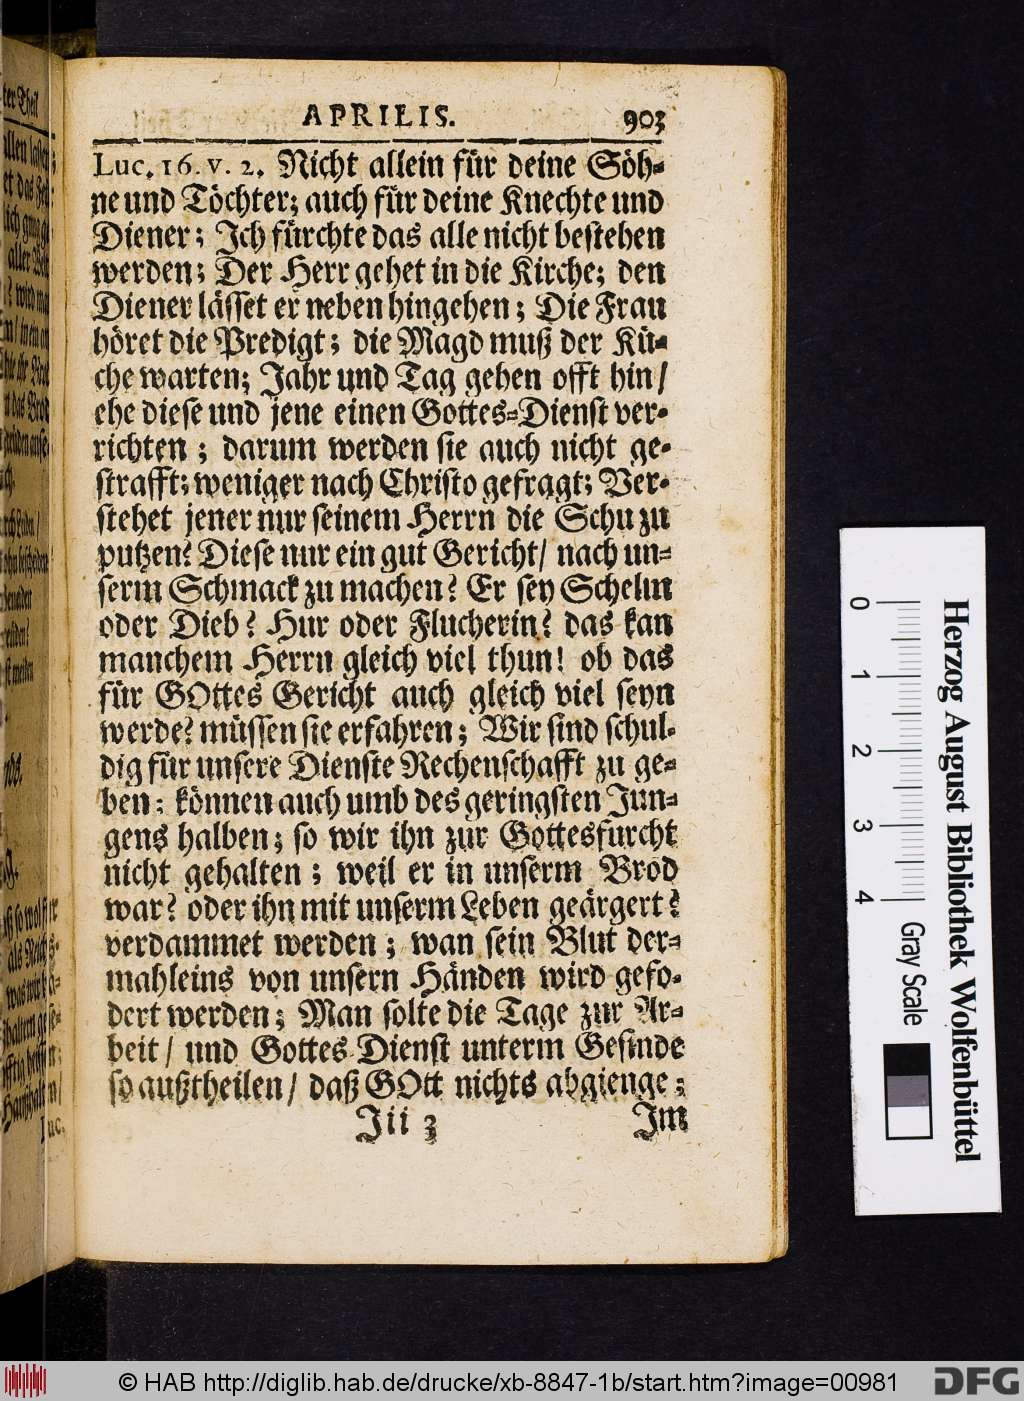 APRILIS. 903
Luc. 16. v. 2. Nicht allein für deine Söh-
ne und Töchter; auch für deine Knechte und
Diener; Ich fürchte das alle nicht bestehen
werden; Der Herr gehet in die Kirche; den
Diener lässet er neben hingehen; Die Frau
höret die Predigt; die Magd muß der Kü-
che warten; Jahr und Tag gehen offt hin/
ehe diese und jene einen Gottes-Dienst ver-
richten; darum werden sie auch nicht ge-
strafft; weniger nach Christo gefragt; Ver-
stehet jener nur seinem Herrn die Schu zu
putzen? Diese nur ein gut Gericht/ nach un-
serm Schmack zu machen? Er sey Schelm
oder Dieb? Hur oder Flucherin? das kan
manchem Herrn gleich viel thun! ob das
für GOttes Gericht auch gleich viel seyn
werde? müssen sie erfahren; Wir sind schul-
dig für unsere Dienste Rechenschafft zu ge-
ben; können auch umb des geringsten Jun-
gens halben; so wir ihn zur Gottesfurcht
nicht gehalten; weil er in unserm Brod
war? oder ihn mit unserm Leben geärgert?
verdammet werden; wan sein Blut der-
mahleins von unsern Händen wird gefo-
dert werden; Man solte die Tage zur Ar-
beit/ und Gottes-Dienst unterm Gesinde
so außtheilen/ daß GOtt nichts abgienge;
Jii 3 Im
0 1 2 3 4
Gray Scale
Herzog August Bibliothek Wolfenbüttel
© HAB http://diglib.hab.de/drucke/xb-8847-1b/start.htm?image=00981
DFG